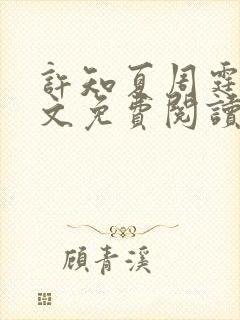 許知夏周霆
文免費閱讀
顧青溪